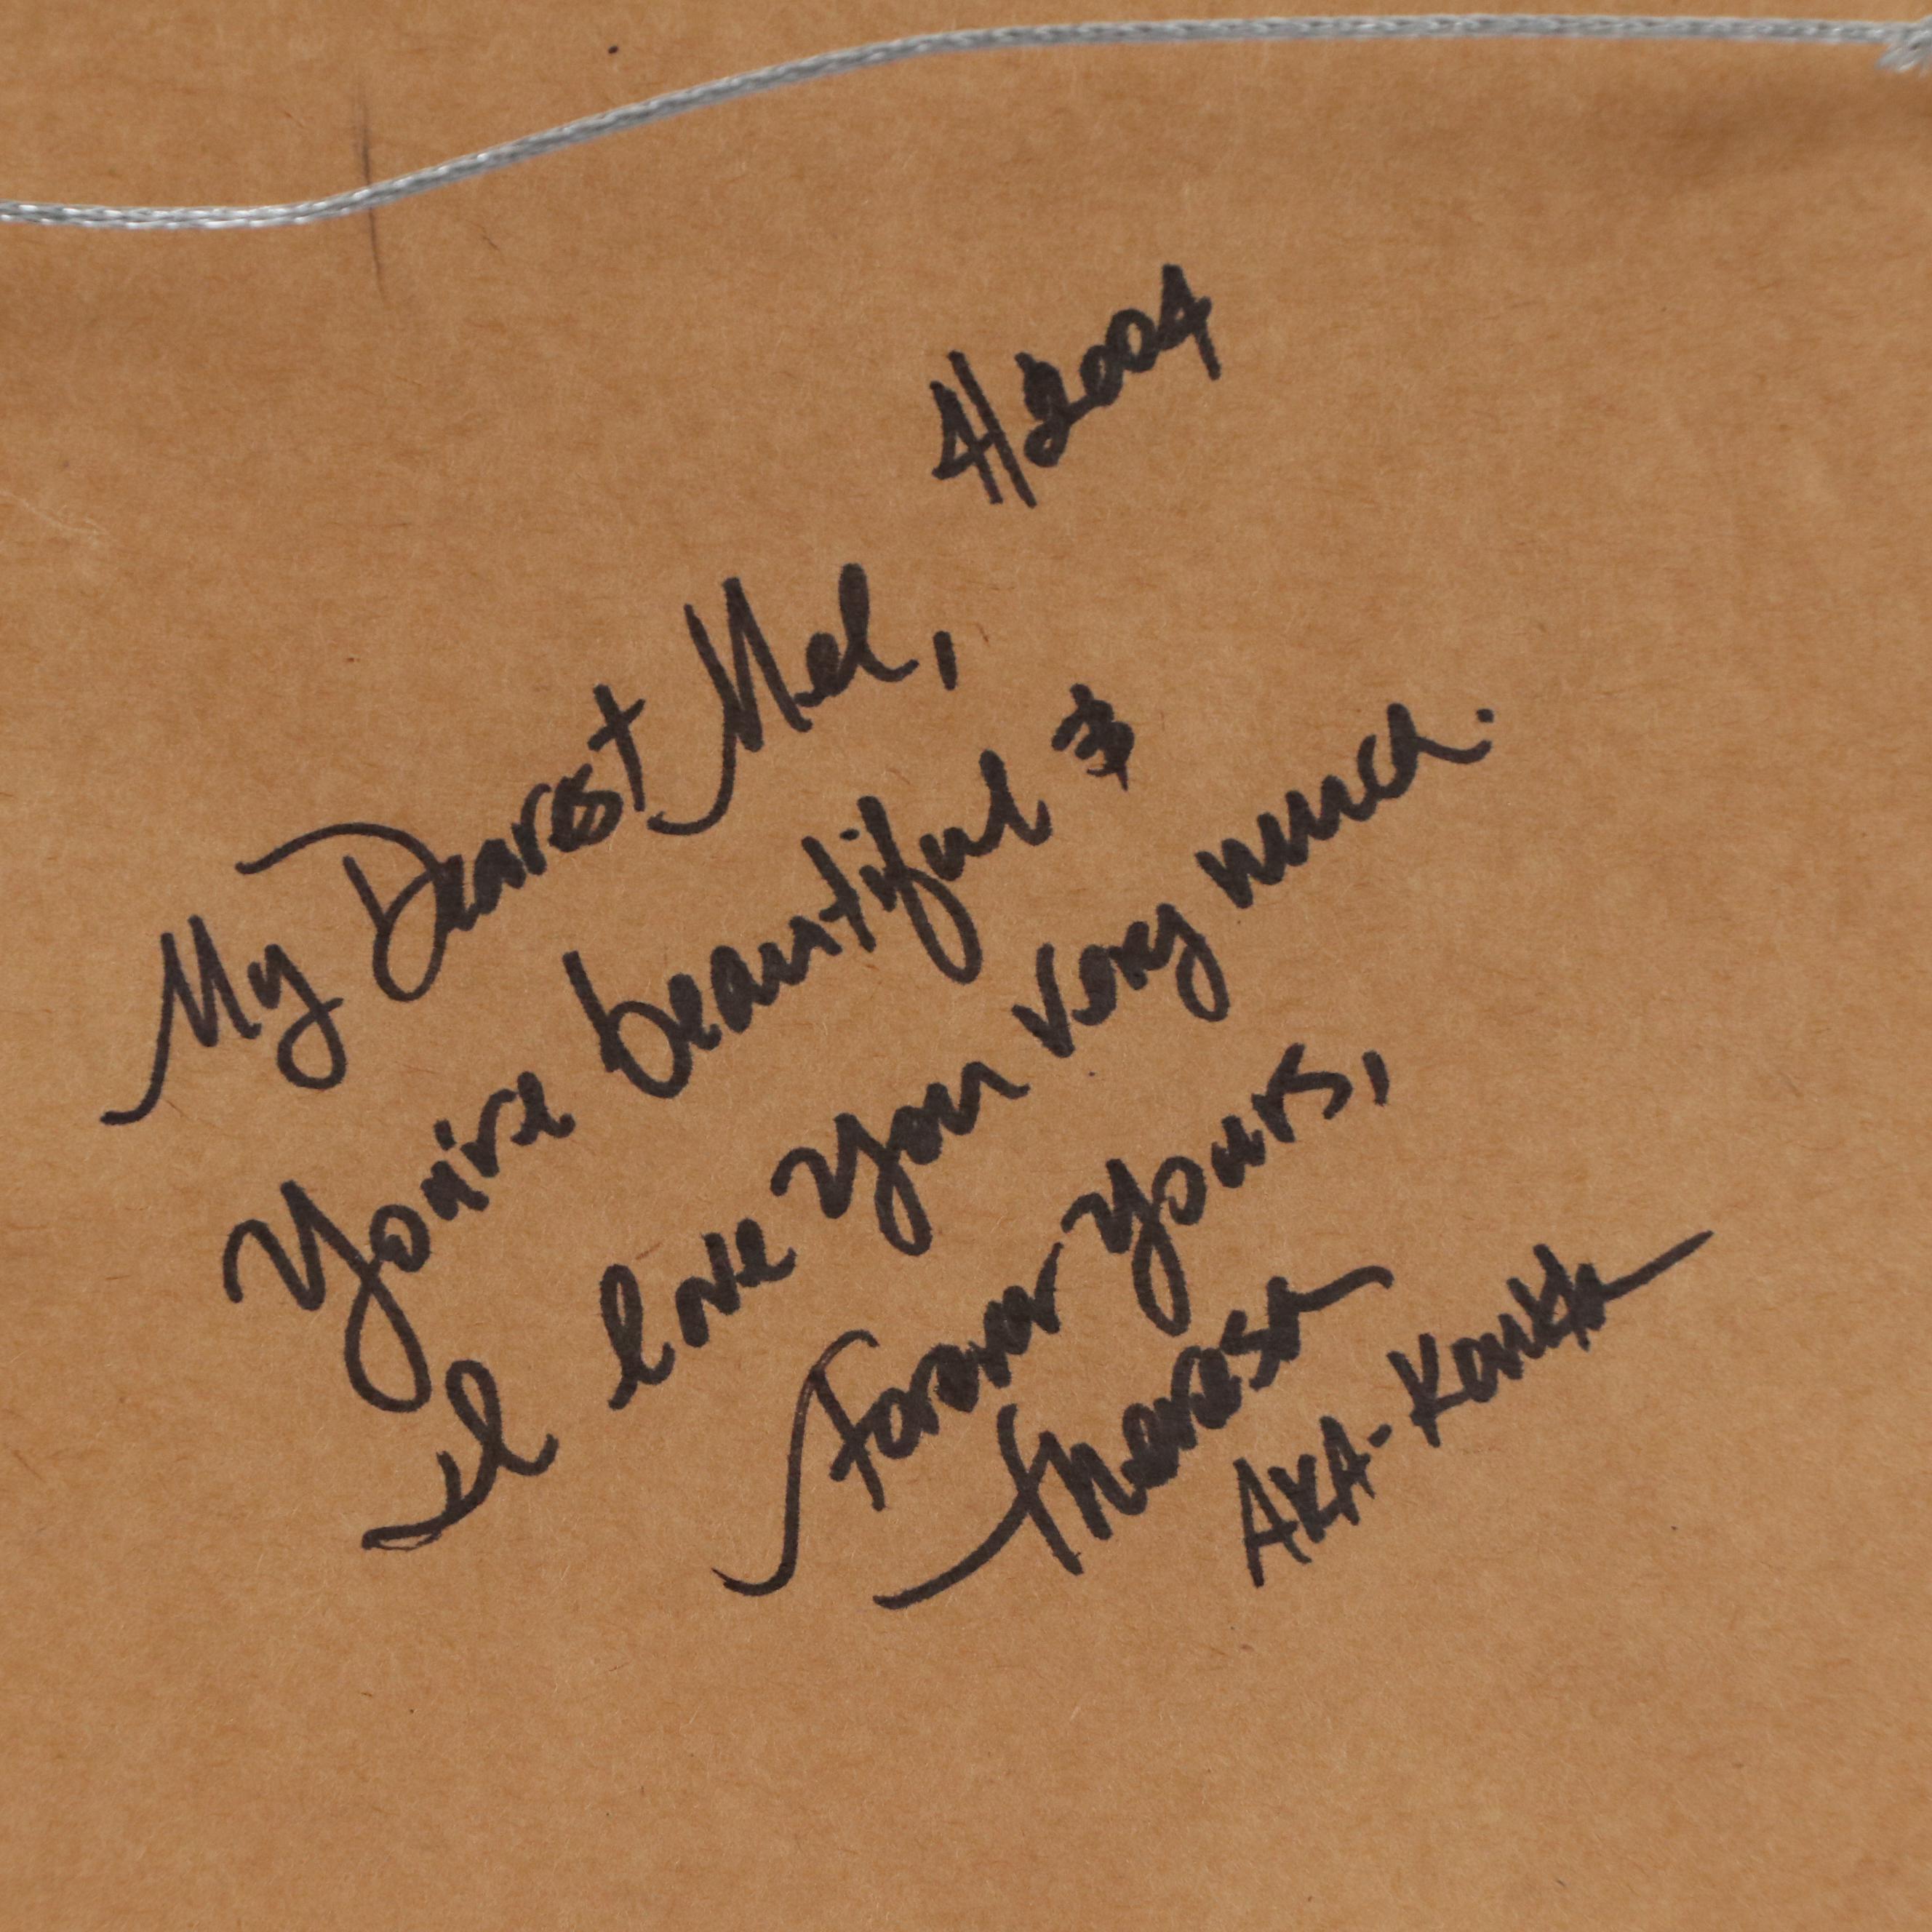 4/2004
My Dearest Mel,
You're beautiful &
I love you very much.
Forever yours,
Theresa
AKA-